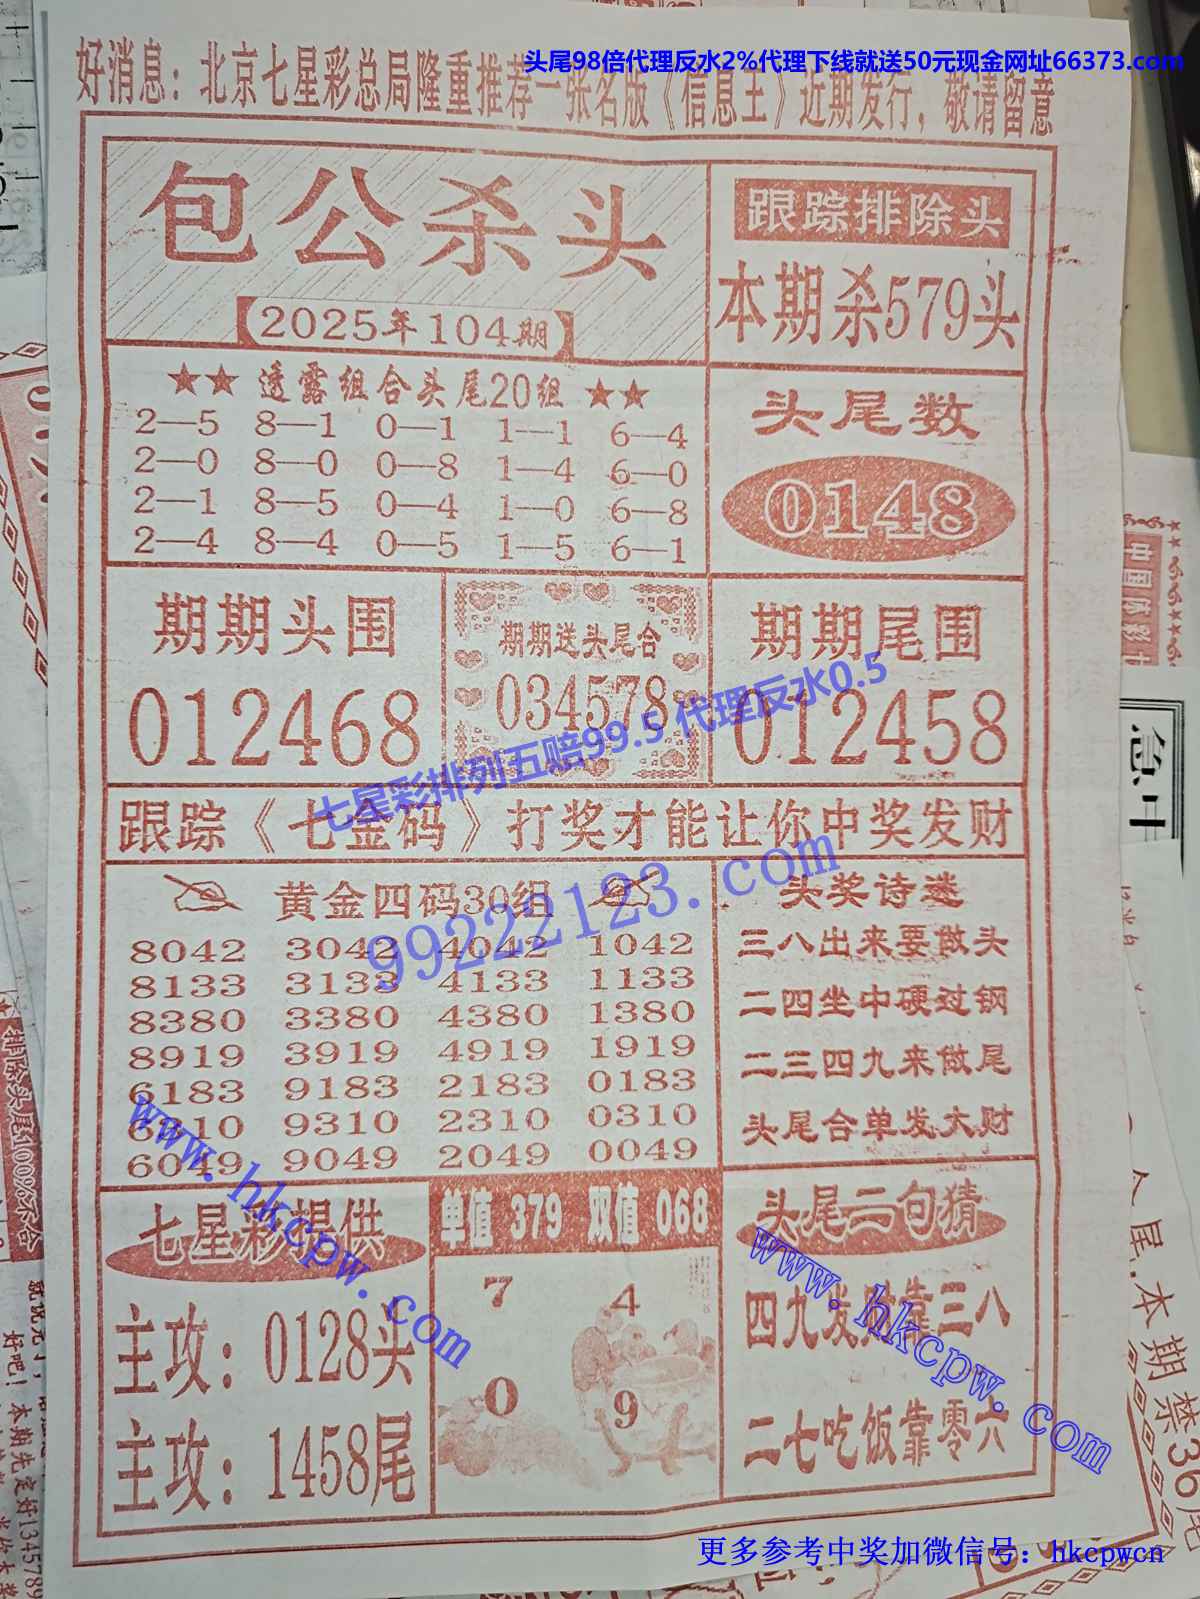 头尾98倍代理反水2%代理下线就送50元现金网址66373.com
好消息：北京七星彩总局隆重推荐一张名版《信息王》近期发行，敬请留意
包公杀头
【2025年104期】
跟踪排除头
本期杀579头
★★ 透露组合头尾20组 ★★
2—5 8—1 0—1 1—1 6—4
2—0 8—0 0—8 1—4 6—0
2—1 8—5 0—4 1—0 6—8
2—4 8—4 0—5 1—5 6—1
头尾数
0148
期期头围
012468
期期送头尾合
034578
期期尾围
012458
七星彩排列五赔99.5 代理反水0.5
跟踪《七金码》打奖才能让你中奖发财
99222123.com
黄金四码30组
8042 3042 4042 1042
8133 3133 4133 1133
8380 3380 4380 1380
8919 3919 4919 1919
6183 9183 2183 0183
6310 9310 2310 0310
6049 9049 2049 0049
头奖诗迷
三八出来要做头
二四坐中硬过钢
二三四九来做尾
头尾合单发大财
www.hkcpw.com
七星彩提供
主攻：0128头
主攻：1458尾
单值 379 双值 068
7 4
0 9
头尾二句猜
四九发财靠三八
二七吃饭靠零六
www.hkcpw.com
更多参考中奖加微信号：hkcpwcn
中国体彩
急
排除头尾100%不合
就说元了，
好吧！本期先定好1345789
本期禁36尾